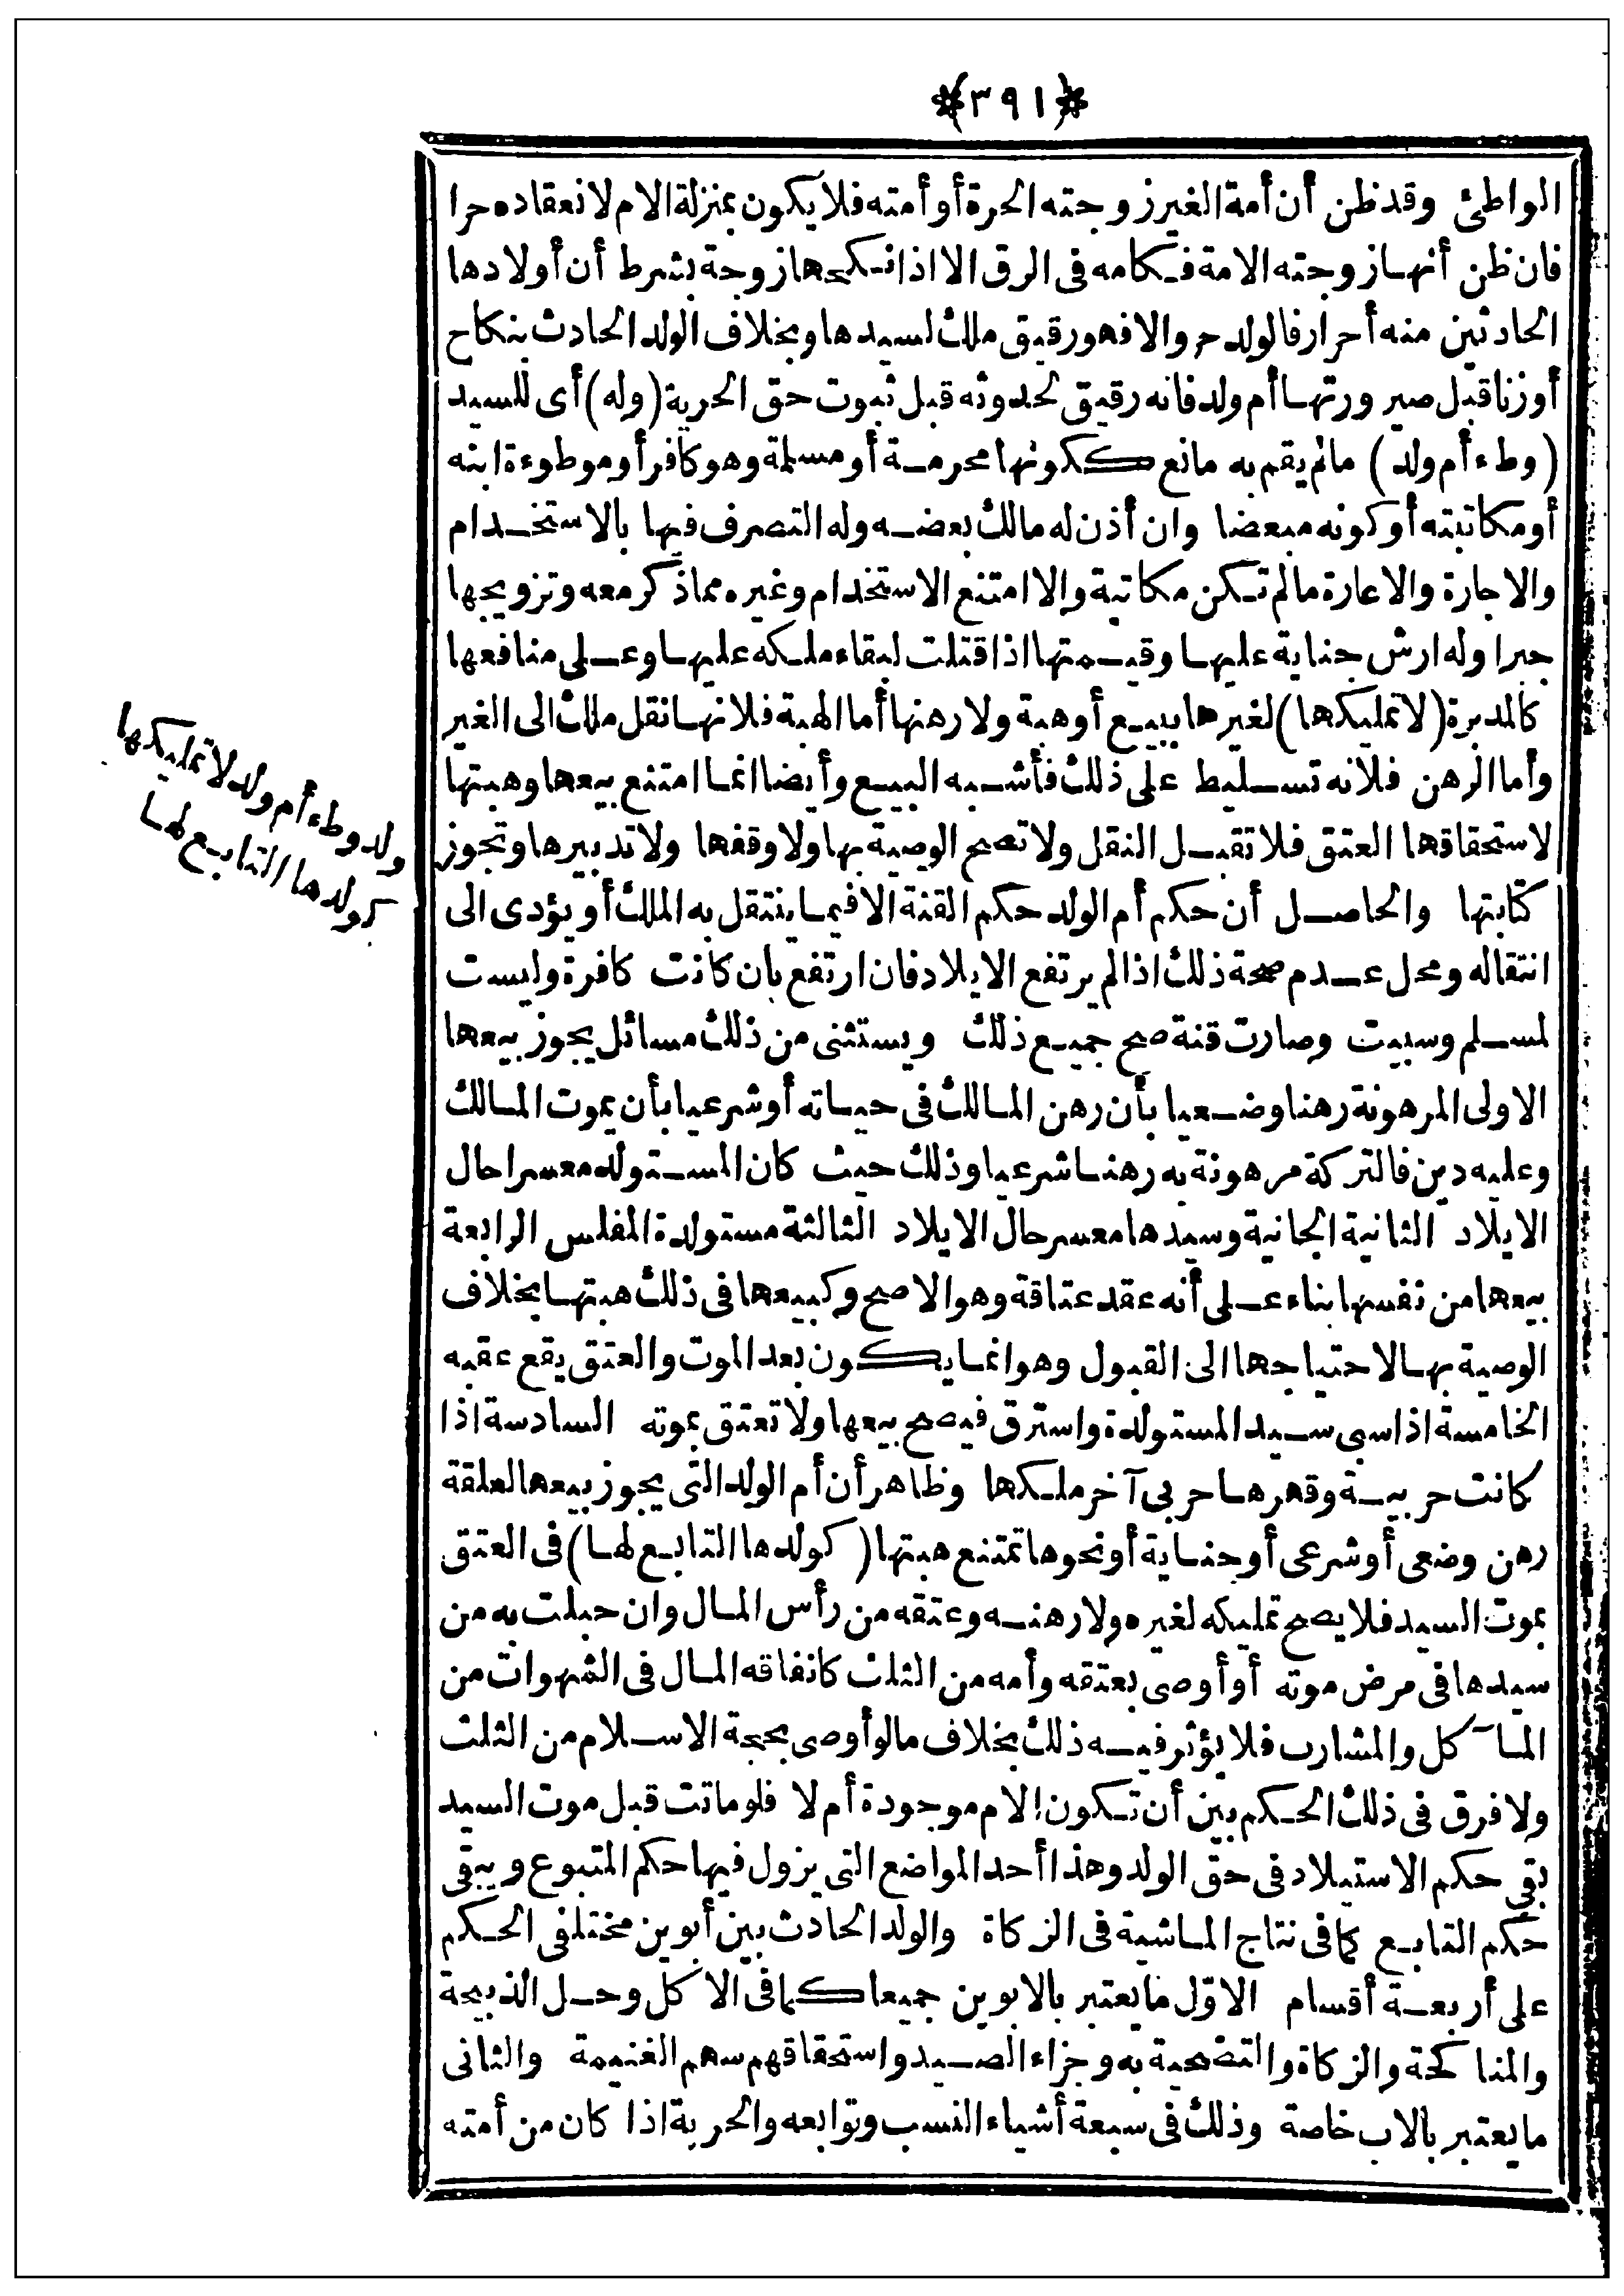 ﴿٣٩١﴾
الواطئ وقد ظن أن أمة الغير زوجته الحرة أو أمته فلا يكون بمنزلة الام لانعقاده حرا
فان ظن أنها زوجته الامة فكامه فى الرق الا اذا نكحها زوجة بشرط أن أولادها
الحادثين منه أحرار فالولد حر والا فهو رقيق ملك لسيدها وبخلاف الولد الحادث بنكاح
أو زنا قبل صيرورتها أم ولد فانه رقيق لحدوثه قبل ثبوت حق الحرية (وله) أى للسيد
(وطء أم ولد) مالم يقم به مانع ككونها محرمة أو مسلمة وهو كافر أو موطوءة ابنه
أو مكاتبته أو كونه مبعضا وان أذن له مالك بعضه وله التصرف فيها بالاستخدام
والاجارة والاعارة مالم تكن مكاتبة والا امتنع الاستخدام وغيره مما ذكر معه وتزويجها
جبرا وله ارش جناية عليها وقيمتها اذا قتلت لبقاء ملكه عليها وعلى منافعها
كالمدبرة (لا تمليكها) لغيرها ببيع أو هبة ولا رهنها أما الهبة فلانها نقل ملك الى الغير
وأما الرهن فلانه تسليط على ذلك فأشبه البيع وأيضا انما امتنع بيعها وهبتها
لاستحقاقها العتق فلا تقبل النقل ولا تصح الوصية بها ولا وقفها ولا تدبيرها وتجوز
كتابتها والحاصل أن حكم أم الولد حكم القنة الا فيما ينتقل به الملك أو يؤدى الى
انتقاله ومحل عدم صحة ذلك اذا لم يرتفع الايلاد فان ارتفع بان كانت كافرة وليست
لمسلم وسبيت وصارت قنة صح جميع ذلك ويستثنى من ذلك مسائل يجوز بيعها
الاولى المرهونة رهنا وضعيا بأن رهن المالك فى حياته أو شرعيا بأن يموت المالك
وعليه دين فالتركة مرهونة به رهنا شرعيا وذلك حيث كان المستولد معسرا حال
الايلاد الثانية الجانية وسيدها معسر حال الايلاد الثالثة مستولدة المفلس الرابعة
بيعها من نفسها بناء على أنه عقد عتاقة وهو الاصح وكبيعها فى ذلك هبتها بخلاف
الوصية بها لاحتياجها الى القبول وهو انما يكون بعد الموت والعتق يقع عقبه
الخامسة اذا سبى سيد المستولدة واسترق فيصح بيعها ولا تعتق بموته السادسة اذا
كانت حربية وقهرها حربى آخر ملكها وظاهر أن أم الولد التى يجوز بيعها لعلقة
رهن وضعى أو شرعى أو جناية أو نحوها تمتنع هبتها (كولدها التابع لها) فى العتق
بموت السيد فلا يصح تمليكه لغيره ولا رهنه وعتقه من رأس المال وان حبلت به من
سيدها فى مرض موته أو أوصى بعتقه وأمه من الثلث كانفاقه المال فى الشهوات من
المآكل والمشارب فلا يؤثر فيه ذلك بخلاف مالو أوصى بحجة الاسلام من الثلث
ولا فرق فى ذلك الحكم بين أن تكون الام موجودة أم لا فلو ماتت قبل موت السيد
بقى حكم الاستيلاد فى حق الولد وهذا أحد المواضع التى يزول فيها حكم المتبوع ويبقى
حكم التابع كما فى نتاج الماشية فى الزكاة والولد الحادث بين أبوين مختلفى الحكم
على أربعة أقسام الاوّل ما يعتبر بالابوين جميعا كما فى الاكل وحل الذبيحة
والمناكحة والزكاة والتضحية به وجزاء الصيد واستحقاقهم سهم الغنيمة والثانى
ما يعتبر بالاب خاصة وذلك فى سبعة أشياء النسب وتوابعه والحرية اذا كان من أمته
وله وطء أم ولد لا تمليكها
كولدها التابع لها